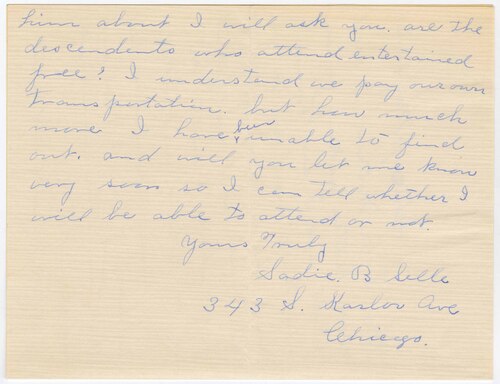 him about I will ask you. are the
descendents who attend entertained
free? I understand we pay our own
transportation. but how much
more I have been unable to find
out. and will you let me know
very soon so I can tell whether I
will be able to attend or not.
Yours Truly
Sadie. B Selle
343 S. Karlov Ave
Chicago.